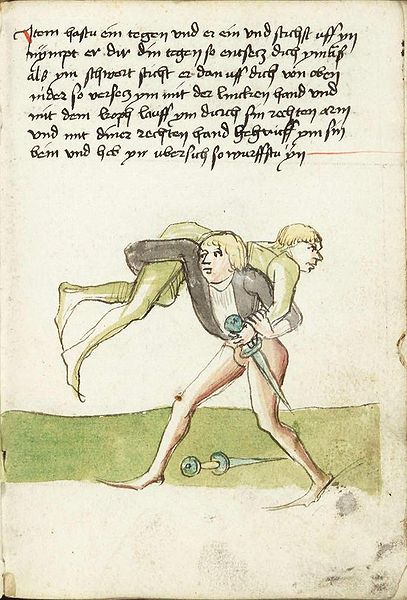 Item hastu ein tegen und er ein und stichst uff yn
nympt er dir din tegen so entsecz dich ymas
als ym schwert sticht er dan uf dich von oben
nider so versecz ym mit der lincken hand und
mit dem koph lauff ym durch sin rechten arm
und mit diner rechten hand begriff ym sin
bein und heb yn ubersich so wurffstu yn